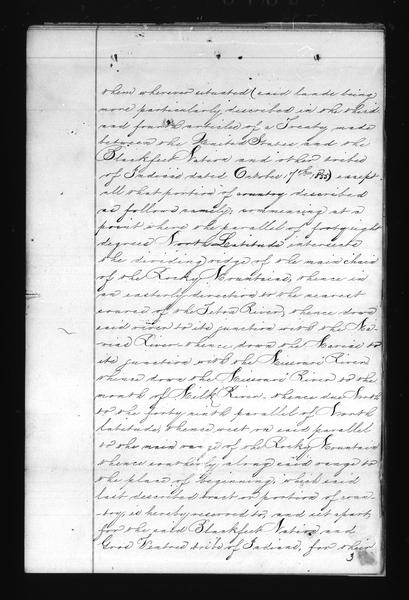 them wherever situated (said lands being
more particularly described in the third
and fourth articles of a Treaty made
between the United States and the
Blackfeet Nation and other tribes
of Indians dated October 17th 1855) except
all that portion of country described
as follows namely; commencing at a
point where the parallel of forty eight
degrees North Latitude intersects
the dividing ridge of the main chain
of the Rocky Mountains, thence in
an easterly direction to the nearest
source of the Teton River, thence down
said river to its junction with the Ma-
rias River thence down the Marias to
its junction with the Missouri River
thence down the Missouri River to the
mouth of Milk River. thence due North
to the forty ninth parallel of North
latitude, thence west on said parallel
to the main range of the Rocky Mountains
thence southerly along said range to
the place of beginning, which said
last described tract or portion of coun-
try, is hereby reserved to, and set apart
for the said Blackfeet Nation and
Gros Ventres tribe of Indians, for their
3